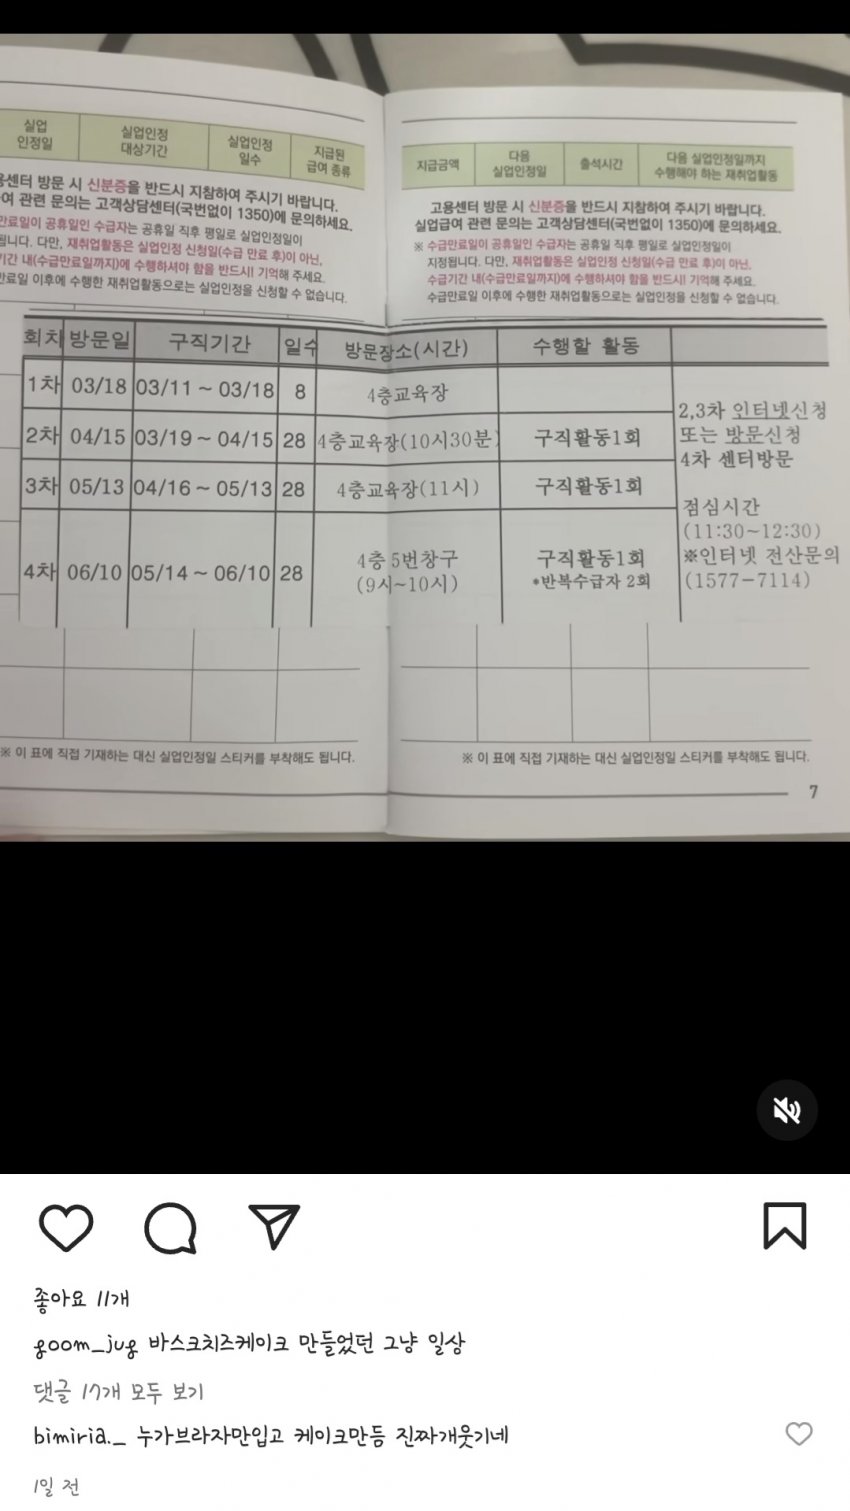 실업
인정일
실업인정
대상기간
실업인정
일수
지급된
급여 종류
용센터 방문 시 신분증을 반드시 지참하여 주시기 바랍니다.
여 관련 문의는 고객상담센터(국번없이 1350)에 문의하세요.
만료일이 공휴일인 수급자는 공휴일 직후 평일로 실업인정일이
됩니다. 다만, 재취업활동은 실업인정 신청일(수급 만료 후)이 아닌,
기간 내(수급만료일까지)에 수행하셔야 함을 반드시! 기억해 주세요.
만료일 이후에 수행한 재취업활동으로는 실업인정을 신청할 수 없습니다.
지급금액
다음
실업인정일
출석시간
다음 실업인정일까지
수행해야 하는 재취업활동
고용센터 방문 시 신분증을 반드시 지참하여 주시기 바랍니다.
실업급여 관련 문의는 고객상담센터(국번없이 1350)에 문의하세요.
※ 수급만료일이 공휴일인 수급자는 공휴일 직후 평일로 실업인정일이
지정됩니다. 다만, 재취업활동은 실업인정 신청일(수급 만료 후)이 아닌,
수급기간 내(수급만료일까지)에 수행하셔야 함을 반드시! 기억해 주세요.
수급만료일 이후에 수행한 재취업활동으로는 실업인정을 신청할 수 없습니다.
회차 방문일 구직기간 일수 방문장소(시간) 수행할 활동
1차 03/18 03/11 ~ 03/18 8 4층교육장
2차 04/15 03/19 ~ 04/15 28 4층교육장(10시30분) 구직활동1회
3차 05/13 04/16 ~ 05/13 28 4층교육장(11시) 구직활동1회
4차 06/10 05/14 ~ 06/10 28 4층 5번창구
(9시~10시) 구직활동1회
*반복수급자 2회
2,3차 인터넷신청
또는 방문신청
4차 센터방문
점심시간
(11:30~12:30)
※인터넷 전산문의
(1577-7114)
※ 이 표에 직접 기재하는 대신 실업인정일 스티커를 부착해도 됩니다.
※ 이 표에 직접 기재하는 대신 실업인정일 스티커를 부착해도 됩니다.
7
좋아요 11개
goom_jug 바스크치즈케이크 만들었던 그냥 일상
댓글 17개 모두 보기
bimiria._ 누가브라자만입고 케이크만듬 진짜개웃기네
1일 전